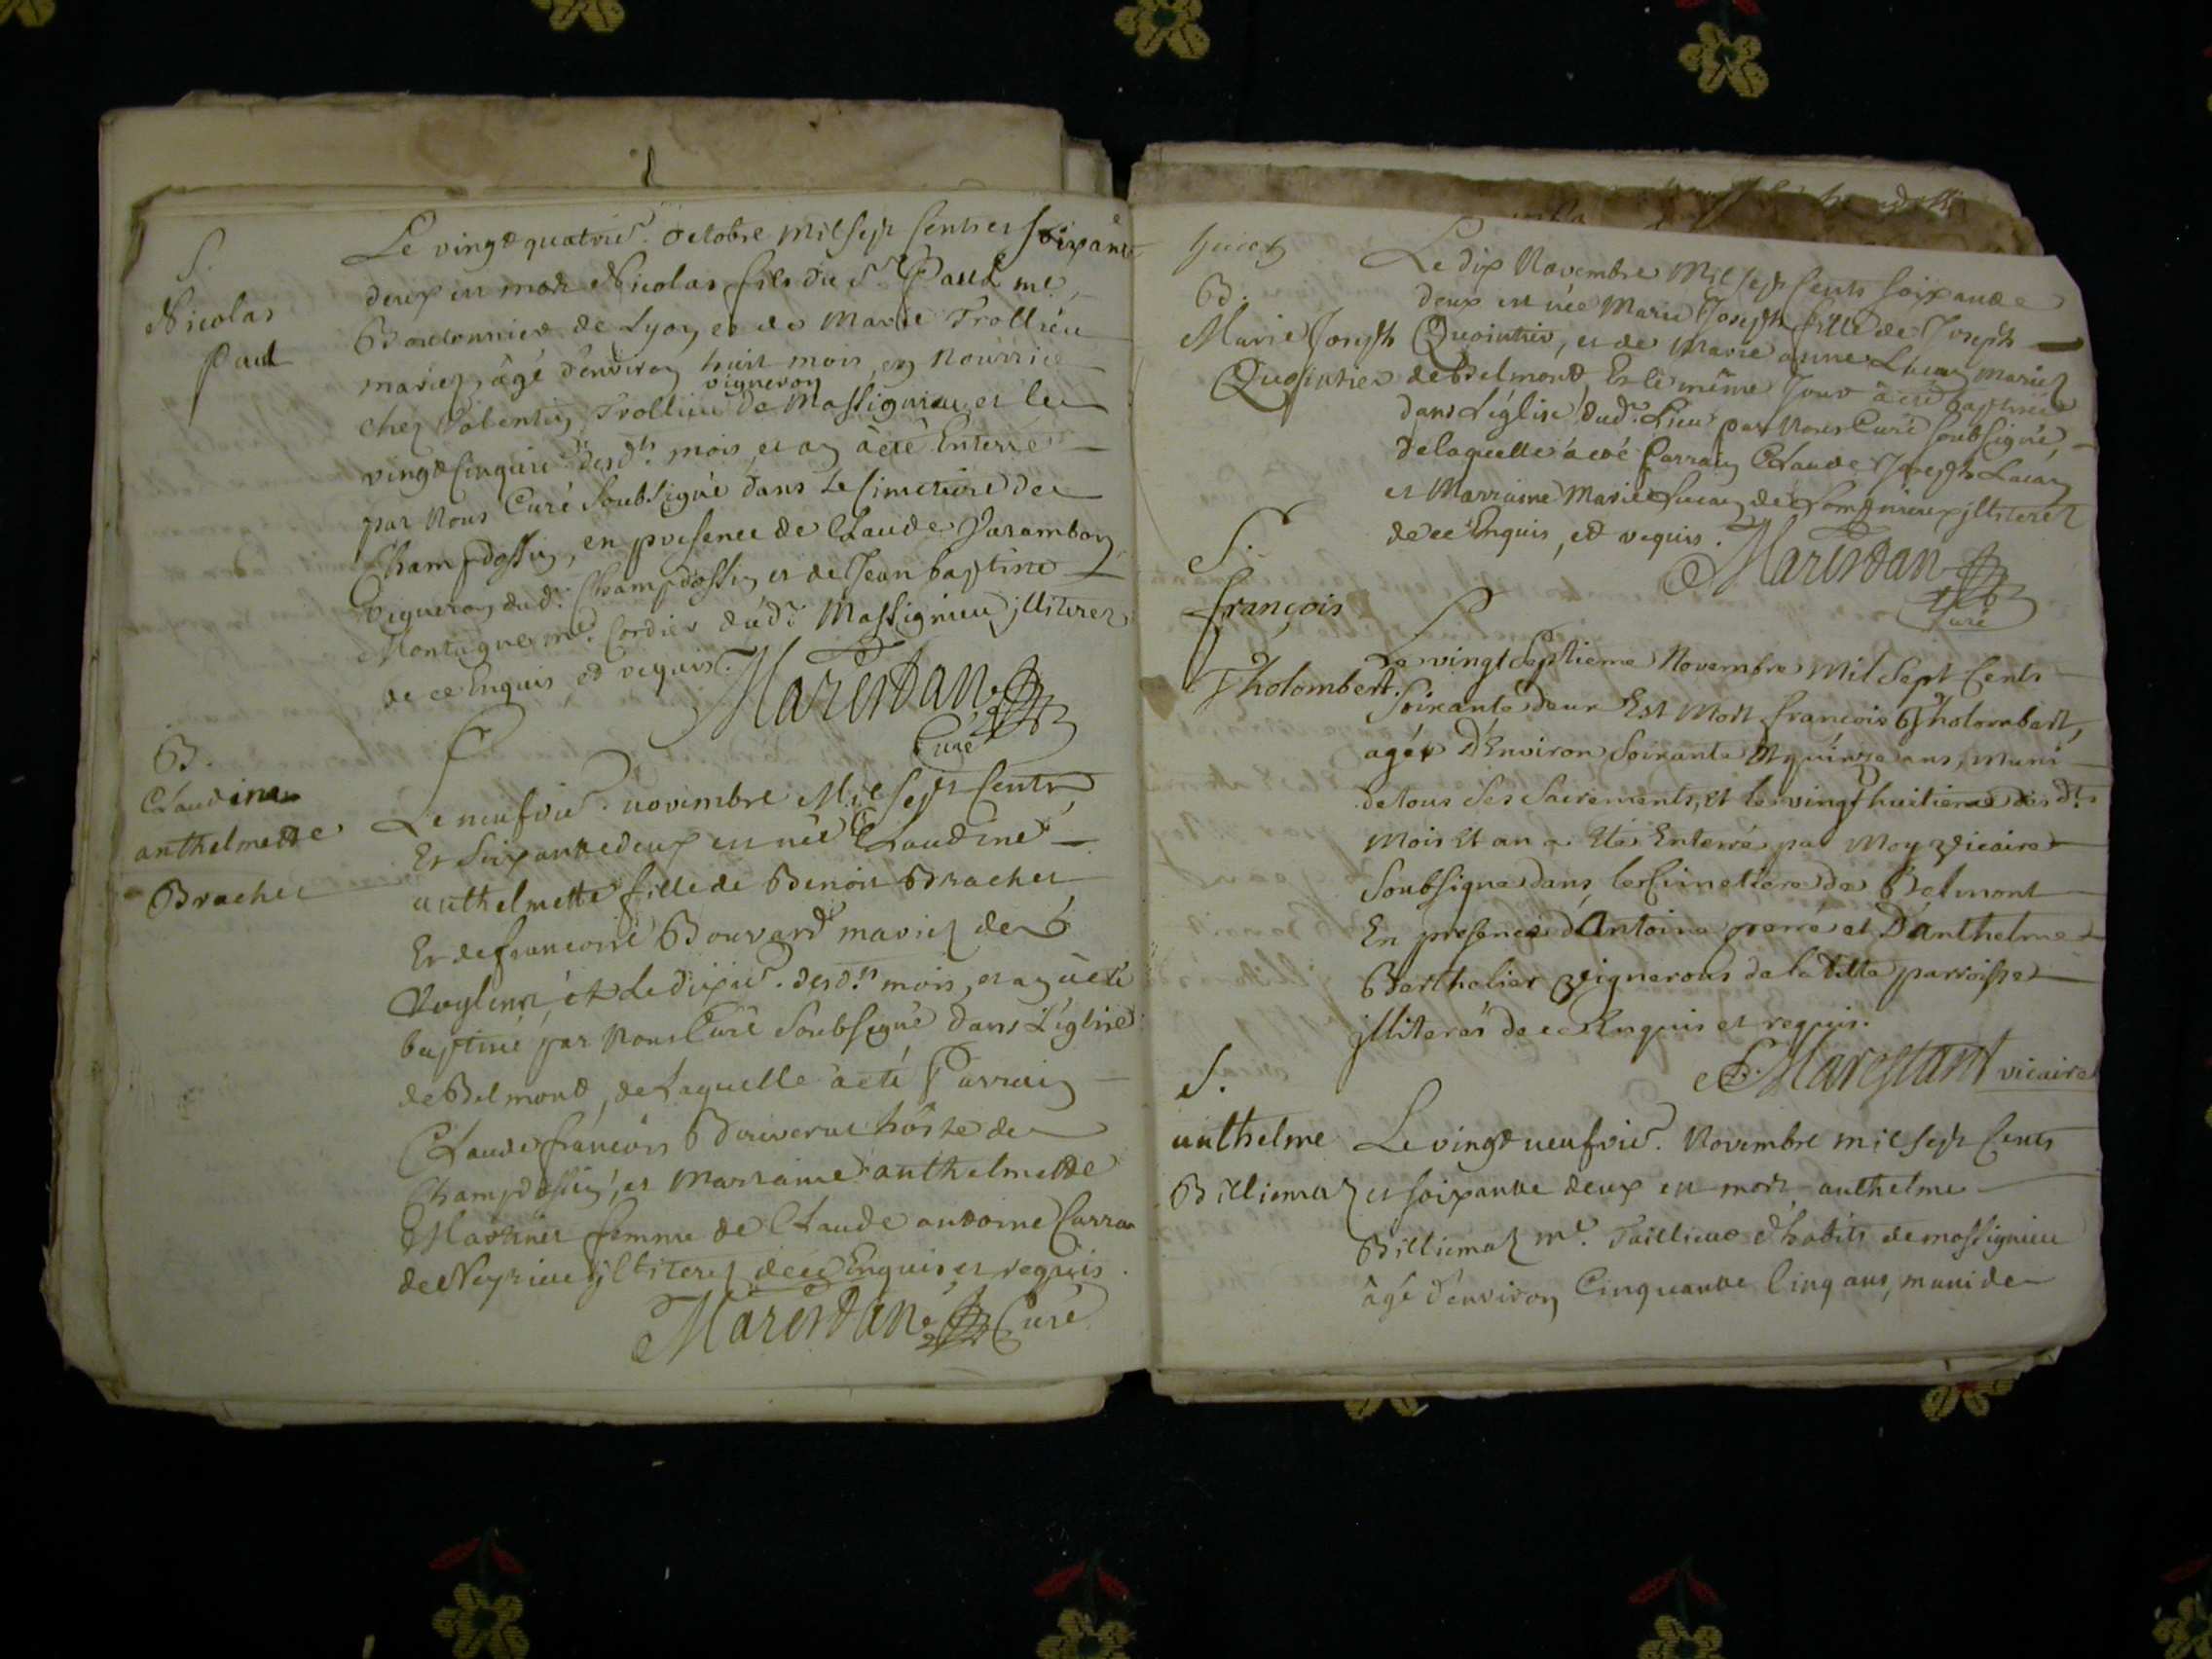 S.
Nicolas
Paul
Le vingt quatrie. octobre mil sept cents et soixante
deux est mort Nicolas fils du Sr. Paul me.
Boutonnier de Lyon et de Marie Trollieu
mariez, âgé d'environ huit mois, en nourrice
vigneron
chez Trollieu de Massignieu et le
vingt cinquie. desdts. mois et an a été Enterré
par Nous Curé Soubsigné dans le Cimetiere de
Champdossin, en presence de Claude Parambon
vigneron dudt. Champdossin et de Jean baptiste
Montagne me. Cordier dudt. Massignieu illiterez
de ce Enquis et requis.
Marestan
Curé
B.
Claudine
anthelmette
Brachet
Le neufvie. novembre Mil sept Cents
Et Soixante deux est née Claudine
anthelmette fille de Benoit Brachet
Et de francoise Bouvard mariez de
et Le dixie. desdts. mois et an a été
baptisé par Nous Curé Soubsigné dans L'églised
de Belmont, de Laquelle a eté Parrain
Claude françois Bouverat hôste de
Champdossin, et Marraine anthelmette
Martinet femme de Claude antoine Carra
de Neyrieu illiterez de ce Enquis et requis.
Marestan Curé
B.
Marie Joseph
Quointier
Le dix Novembre Mil sept Cents Soixante
deux est née Marie Joseph fille de Joseph
Quointier, et de Marie anne Lucan mariez
de Belmont Et le même Jour a été baptisée
dans L'église dudt. Lieu par Nous Curé soubsigné,
de laquelle a eté Parrain Claude Joseph Lucan
et Marraine Marie Lucan de Lompnieux illiterez
de ce Enquis, et requis.
Marestan
Curé
S.
françois
Tholombert.
Le vingt Septieme Novembre Mil Sept Cents
Soixante deux Est Mort francois Tholombert,
agé D'Environ Soixante Et quinze ans, muni
de tous Ses Sacrements, et le vingt huitieme des dts
Mois Et an a Eté Enterré par Moy vicaire
Soubsigne dans le Cimetiere de Belmont
En presence d'Antoine perré et D'anthelme
Berthelier vignerons de la ditte parroisse
illiterés de ce Enquis et requis.
Marestant vicaire
S.
anthelme
Billiemaz
Le vingt neufvie. Novembre mil sept Cents
et soixante deux est mort anthelme
Billiemaz me. Tailleur d'habits de massignieu
âgé d'environ Cinquante Cinq ans, muni de